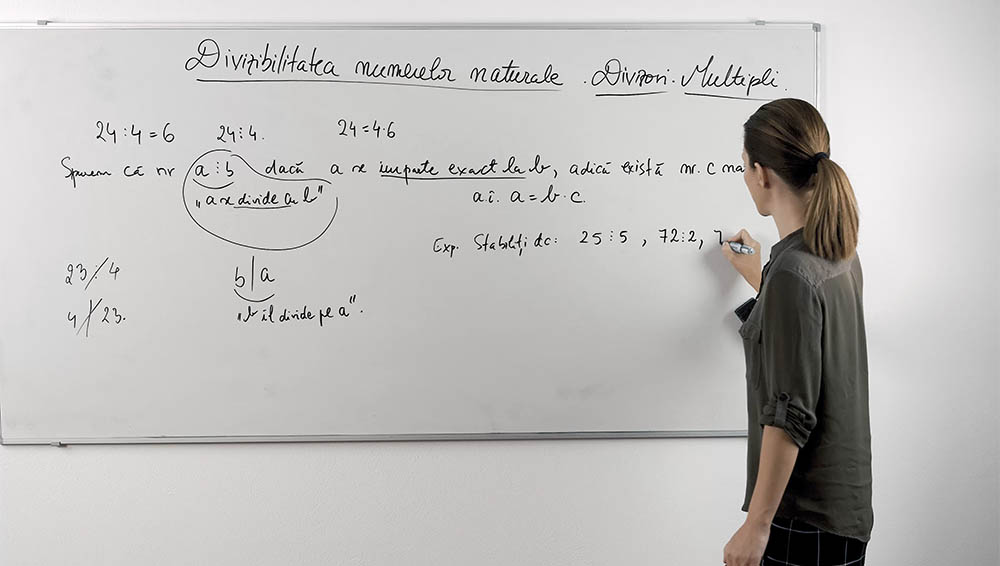 Divizibilitatea numerelor naturale. Divizori. Multipli.
24:4=6 24⋮4. 24=4·6
Spunem că nr a⋮b dacă a se împarte exact la b, adică există nr. c
„a se divide cu b" a.î. a=b·c.
Exp. Stabiliți dc: 25⋮5, 72⋮2, 7
23⋮̸4 b|a
4∤23. „b îl divide pe a".